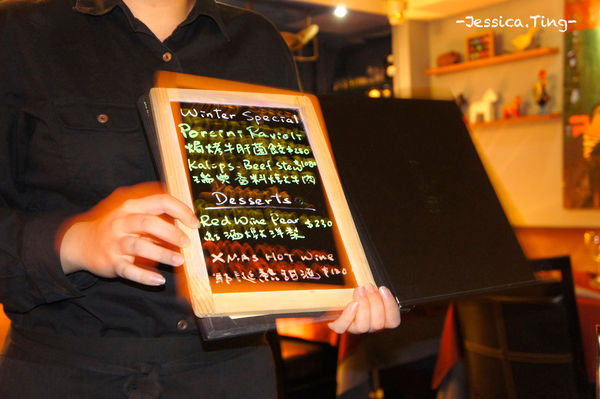 -Jessica.Ting-
Winter Special
Porcini Ravioli
焗烤牛肝菌餃 $280
Kalops-Beef Stew
瑞典香料燉牛肉
Desserts
Red Wine Pear $230
紅酒燉洋梨
XMAS HOT Wine
耶誕熱甜酒